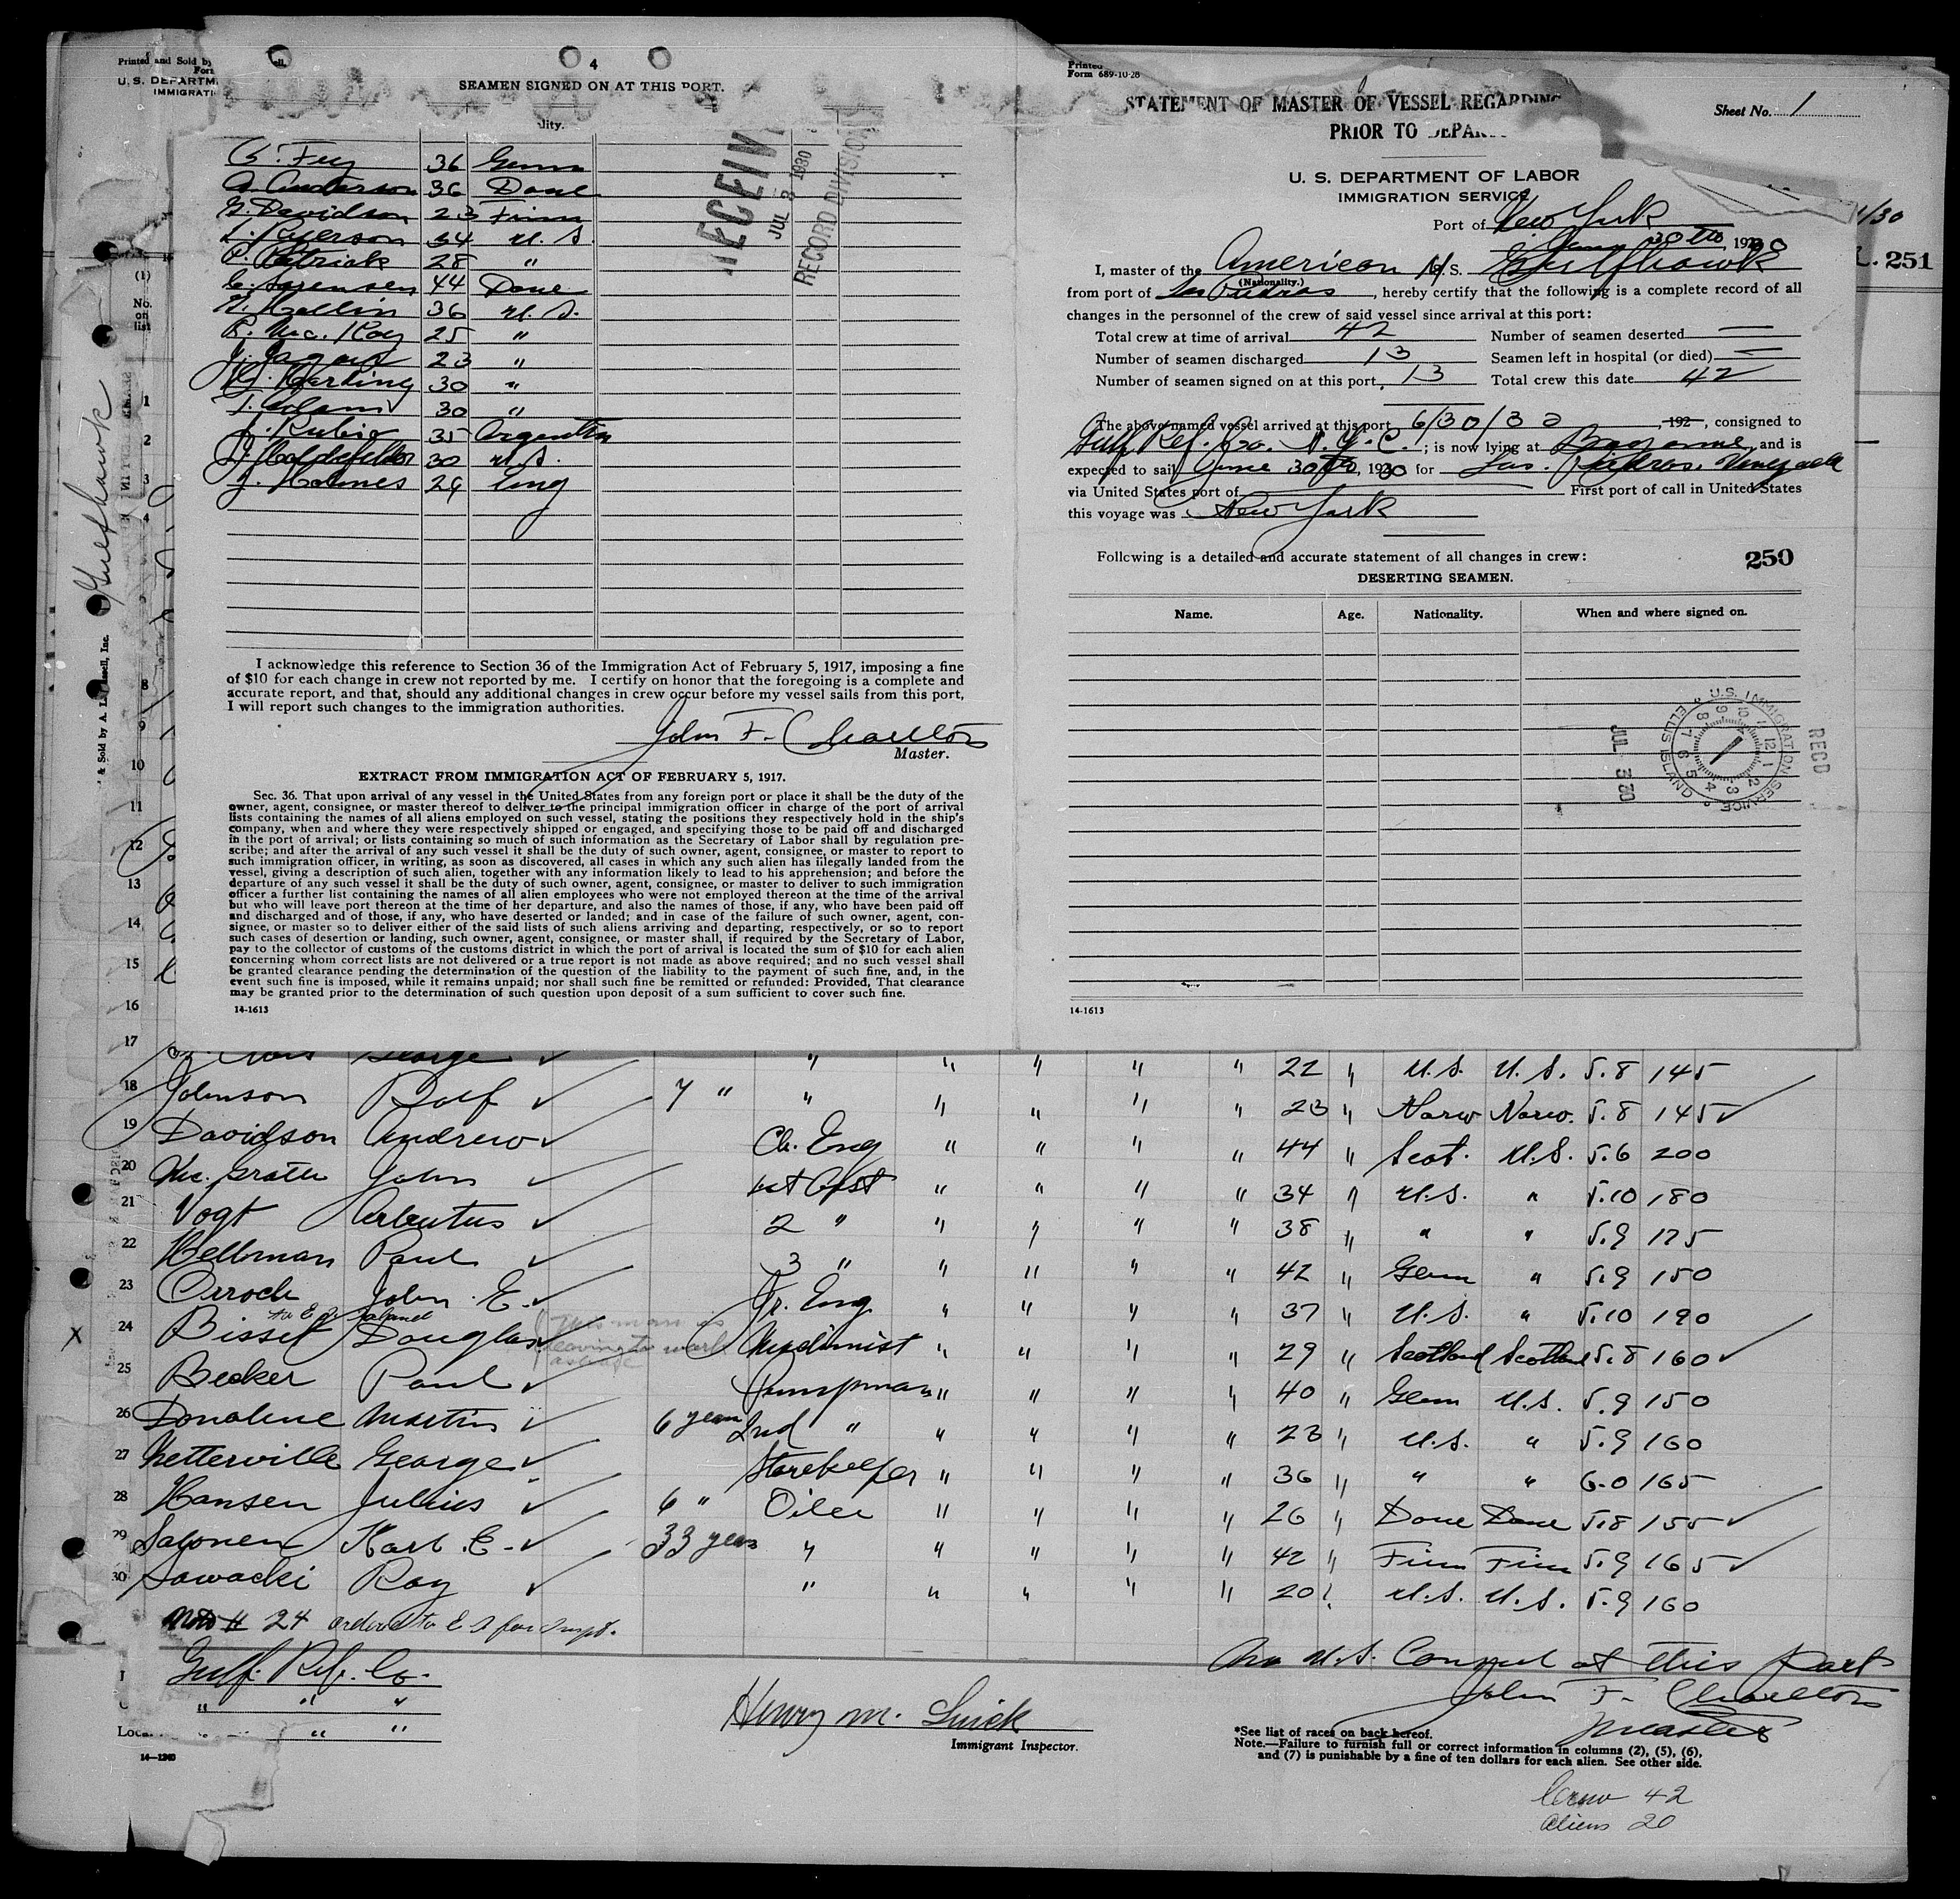 Printed and Sold by
U. S. DEPARTM
IMMIGRATI
4
SEAMEN SIGNED ON AT THIS PORT.
lity.
36 Germ
A. Anderson 36 Dane
G. Davidson 23 Finn
34 U. S.
P. Patrick 28 "
C. Sorensen 44 Dane
36 U. S.
R. Mc. Koy 25 "
23 "
W. Harding 30 "
30 "
J. Rubio 35 Argentin
30 U.S.
J. Holmes 29 Eng
RECEIV
JUL 3 1930
RECORD DIVISION
I acknowledge this reference to Section 36 of the Immigration Act of February 5, 1917, imposing a fine
of $10 for each change in crew not reported by me. I certify on honor that the foregoing is a complete and
accurate report, and that, should any additional changes in crew occur before my vessel sails from this port,
I will report such changes to the immigration authorities.
John F. Charlton
Master.
EXTRACT FROM IMMIGRATION ACT OF FEBRUARY 5, 1917.
Sec. 36. That upon arrival of any vessel in the United States from any foreign port or place it shall be the duty of the
owner, agent, consignee, or master thereof to deliver to the principal immigration officer in charge of the port of arrival
lists containing the names of all aliens employed on such vessel, stating the positions they respectively hold in the ship's
company, when and where they were respectively shipped or engaged, and specifying those to be paid off and discharged
in the port of arrival; or lists containing so much of such information as the Secretary of Labor shall by regulation pre-
scribe; and after the arrival of any such vessel it shall be the duty of such owner, agent, consignee, or master to report to
such immigration officer, in writing, as soon as discovered, all cases in which any such alien has illegally landed from the
vessel, giving a description of such alien, together with any information likely to lead to his apprehension; and before the
departure of any such vessel it shall be the duty of such owner, agent, consignee, or master to deliver to such immigration
officer a further list containing the names of all alien employees who were not employed thereon at the time of the arrival
but who will leave port thereon at the time of her departure, and also the names of those, if any, who have been paid off
and discharged and of those, if any, who have deserted or landed; and in case of the failure of such owner, agent, con-
signee, or master so to deliver either of the said lists of such aliens arriving and departing, respectively, or so to report
such cases of desertion or landing, such owner, agent, consignee, or master shall, if required by the Secretary of Labor,
pay to the collector of customs of the customs district in which the port of arrival is located the sum of $10 for each alien
concerning whom correct lists are not delivered or a true report is not made as above required; and no such vessel shall
be granted clearance pending the determination of the question of the liability to the payment of such fine, and, in the
event such fine is imposed, while it remains unpaid; nor shall such fine be remitted or refunded: Provided, That clearance
may be granted prior to the determination of such question upon deposit of a sum sufficient to cover such fine.
14-1613
Printed
Form 689-10-28
STATEMENT OF MASTER OF VESSEL REGARDING
PRIOR TO DEPAR
Sheet No. 1
U. S. DEPARTMENT OF LABOR
IMMIGRATION SERVICE
Port of New York
June 30th, 1930
I, master of the American M. S. Gulfhawk
(Nationality.)
from port of Las Piedras, hereby certify that the following is a complete record of all
changes in the personnel of the crew of said vessel since arrival at this port:
Total crew at time of arrival 42 Number of seamen deserted —
Number of seamen discharged 13 Seamen left in hospital (or died) —
Number of seamen signed on at this port, 13 Total crew this date 42
The above-named vessel arrived at this port 6/30/30, 192 , consigned to
Gulf Ref. Co. N. Y. C. ; is now lying at Bayonne, and is
expected to sail June 30th, 1930 for Las. Piedras. Venezuela
via United States port of First port of call in United States
this voyage was New York
Following is a detailed and accurate statement of all changes in crew:
250
DESERTING SEAMEN.
Name. Age. Nationality. When and where signed on.
U.S. IMMIGRATION SERVICE
ELLIS ISLAND
JUL 3 30
RECD
14-1613
/30
251
Gulfhawk
& Sold by A.
(1)
No.
on
list
1
2
3
4
8
9
10
11
12
13
14
15
16
17 George " " " " " 22 " U.S. U.S. 5.8 145
18 Johnson Rolf 7 " " " " " " 23 " Norw Norw. 5.8 145
19 Davidson Andrew Ch. Eng " " " " 44 " Scot. U.S. 5.6 200
20 Mc. Grath John 1st Asst " " " " 34 " U.S. " 5.10 180
21 Vogt Arbutus 2 " " " " " 38 " " " 5.9 175
22 Hellman Paul 3 " " " " " 42 " Germ " 5.9 150
23 Orrock John E. Jr. Eng " " " " 37 " U.S. " 5.10 190
24 Bisset Douglas Machinist " " " " 29 " Scotland Scotland 5.8 160
25 Becker Paul Pumpman " " " " 40 " Germ U.S. 5.9 150
26 Donohue Martin 6 years 2nd " " " " " 23 " U.S. " 5.9 160
27 Netterville George Storekeeper " " " " 36 " " " 6-0 165
28 Hansen Julius 6 " Oiler " " " " 26 " Dane Dane 5.8 155
29 Salonen Karl E. 33 years " " " " " 42 " Finn Finn 5.9 165
30 Sawacki Ray " " " " " 20 " U.S. U.S. 5.9 160
Note # 24 ordered to E I for inspt.
Gulf. Ref. Co.
" " "
" "
14-1240
Henry M. Luick
Immigrant Inspector.
No U.S. Consul at this Port
John F. Charlton
Master
*See list of races on back hereof.
Note.—Failure to furnish full or correct information in columns (2), (5), (6),
and (7) is punishable by a fine of ten dollars for each alien. See other side.
Crew 42
Aliens 20